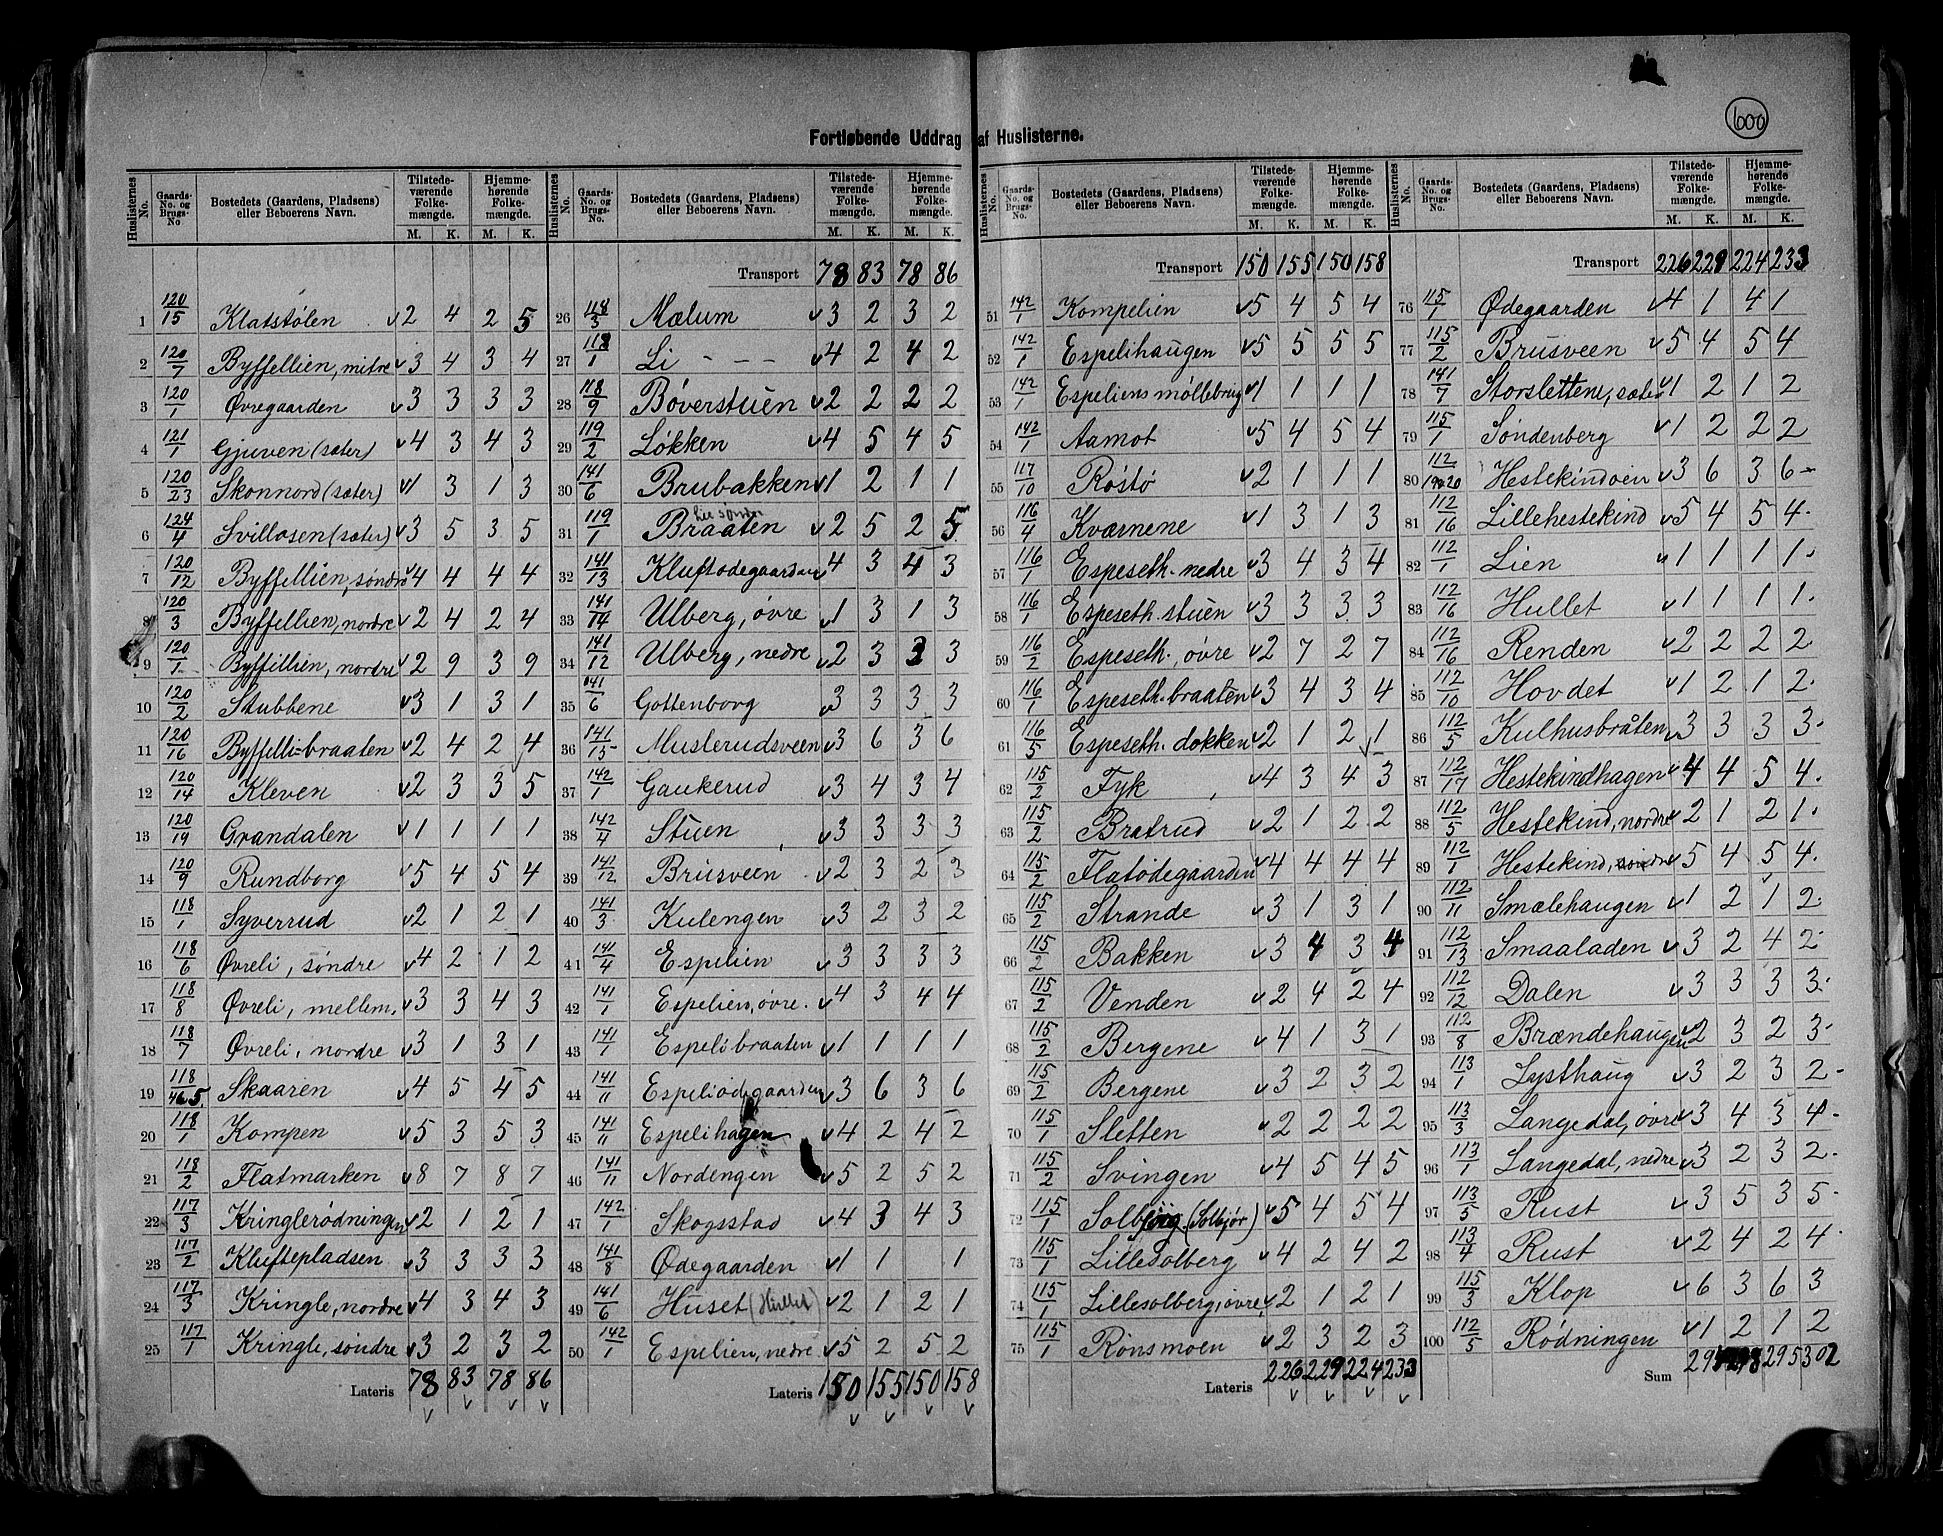 600
Fortløbende Uddrag af Huslisterne.
Huslisternes No. | Gaards-No. og Brugs-No | Bostedets (Gaardens, Pladsens) eller Beboerens Navn. | Tilstedeværende Folkemængde. M. K. | Hjemmehørende Folkemængde. M. K.
1 120/15 Klatstølen 2 4 2 5
2 120/7 Byffellien, mitre 3 4 3 4
3 120/1 Øvregaarden 3 3 3 3
4 121/1 Gjuven (sæter) 4 3 4 3
5 120/23 Skonnord (sæter) 1 3 1 3
6 124/4 Svillosen (sæter) 3 5 3 5
7 120/12 Byffellien, søndre 4 4 4 4
8 120/3 Byffellien, nordre 2 4 2 4
9 120/1 Byffillien, nordre 2 9 3 9
10 120/2 Stubbene 3 1 3 1
11 120/16 Byffelli-braaten 2 4 2 4
12 120/14 Kleven 2 3 3 5
13 120/19 Grandalen 1 1 1 1
14 120/9 Rundborg 5 4 5 4
15 118/1 Syverrud 2 1 2 1
16 118/6 Øvreli, søndre 4 2 1 2
17 118/8 Øvreli, mellem. 3 3 4 3
18 118/7 Øvreli, nordre 3 1 3 1
19 118/4 5 Skaaren 4 5 4 5
20 118/1 Kompen 5 3 5 3
21 118/2 Flatmarken 8 7 8 7
22 117/3 Kringlerødningen 2 1 2 1
23 117/2 Kluftepladsen 3 3 3 3
24 117/3 Kringle, nordre 4 3 4 3
25 117/1 Kringle, søndre 3 2 3 2
Lateris 78 83 78 86
Huslisternes No. | Gaards-No. og Brugs-No. | Bostedets (Gaardens, Pladsens) eller Beboerens Navn. | Tilstedeværende Folkemængde. M. K. | Hjemmehørende Folkemængde. M. K.
Transport 78 83 78 86
26 118/3 Mælum 3 2 3 2
27 118/1 Li - - - 4 2 4 2
28 118/9 Bøverstuen 2 2 2 2
29 119/2 Løkken 4 5 4 5
30 141/6 Brubakken 1 2 1 1
31 119/1 Braaten 2 5 2 5
32 141/13 Kluftødegaarden 4 3 4 3
33 141/14 Ulberg, øvre 1 3 1 3
34 141/12 Ulberg, nedre 2 3 3 3
35 141/6 Gottenborg 3 3 3 3
36 141/15 Muslerudsveen 3 6 3 6
37 142/1 Gaukerud 3 4 3 4
38 142/4 Stuen 3 3 3 3
39 141/12 Brusveen 2 3 2 3
40 141/3 Kulengen 3 2 3 2
41 141/4 Espelien 3 3 3 3
42 141/1 Espelien, øvre. 4 3 4 4
43 141/1 Espelibraaten 1 1 1 1
44 141/11 Espeliødegaarden 3 6 3 6
45 141/11 Espelihagen 4 2 4 2
46 141/11 Nordengen 5 2 5 2
47 142/1 Skogsstad 4 3 4 3
48 141/8 Ødegaarden 1 1 1
49 141/6 Huset (Hullet) 2 1 2 1
50 142/1 Espelien, nedre. 5 2 5 2
Lateris 150 155 150 158
Huslisternes No. | Gaards-No. og Brugs-No. | Bostedets (Gaardens, Pladsens) eller Beboerens Navn. | Tilstedeværende Folkemængde. M. K. | Hjemmehørende Folkemængde. M. K.
Transport 150 155 150 158
51 142/1 Kompelien 5 4 5 4
52 142/1 Espelihaugen 5 5 5 5
53 142/1 Espeliens møllebrug 1 1 1 1
54 142/1 Aamot 5 4 5 4
55 117/10 Røstø 2 1 1 1
56 116/4 Kværnene 1 3 1 3
57 116/1 Espeseth. nedre 3 4 3 4
58 116/1 Espeseth. stuen 3 3 3 3
59 116/2 Espeseth., øvre 2 7 2 7
60 116/1 Espeseth. braaten 3 4 3 4
61 116/5 Espeseth. dokken 2 1 2 1
62 115/2 Fyk 4 3 4 3
63 115/2 Bratrud 2 1 2 2
64 115/2 Flatødegaarden 4 4 4 4
65 115/2 Strande 3 1 3 1
66 115/2 Bakken 3 4 3 4
67 115/2 Venden 2 4 2 4
68 115/2 Bergene 4 1 3 1
69 115/2 Bergene 3 2 3 2
70 115/1 Sletten 2 2 2 2
71 115/2 Svingen 4 5 4 5
72 115/1 (Solbjør) 5 4 5 4
73 115/1 Lillesolberg 4 2 4 2
74 115/1 Lillesolberg, øvre, 2 1 2 1
75 115/1 Rønsmoen 2 3 2 3
Lateris 226 229 224 233
Huslisternes No. | Gaards-No. og Brugs-No. | Bostedets (Gaardens, Pladsens) eller Beboerens Navn. | Tilstedeværende Folkemængde. M. K. | Hjemmehørende Folkemængde. M. K.
Transport 226 229 224 233
76 115/1 Ødegaarden 4 1 4 1
77 115/2 Brusveen 5 4 5 4
78 141/7 Storslettene, sæter 1 2 1 2
79 115/1 Søndenberg 1 2 2 2
80 112/19 20 Hestekindoien 3 6 3 6
81 112/16 Lillehestekind 5 4 5 4
82 112/1 Lien 1 1 1 1
83 112/16 Hullet 1 1 1 1
84 112/16 Renden 2 2 2 2
85 112/10 Hovdet 1 2 1 2
86 112/5 Kulhusbråten 3 3 3 3
87 112/17 Hestekindhagen 4 4 5 4
88 112/5 Hestekind, nordre 2 1 2 1
89 112/1 Hestekind, søndre 5 4 5 4
90 112/11 Smælehaugen 1 2 1 2
91 112/13 Smaaladen 3 2 4 2
92 112/12 Dalen 3 3 3 3
93 112/8 Brændehaugen 2 3 2 3
94 113/1 Lysthaug 3 2 3 2
95 113/3 Langedal, øvre 3 4 3 4
96 113/1 Langedal, nedre 3 2 3 2
97 113/5 Rust 3 5 3 5
98 113/4 Rust 2 4 2 4
99 115/3 Klop 6 3 6 3
100 112/5 Rødningen 1 2 1 2
Sum 295 302